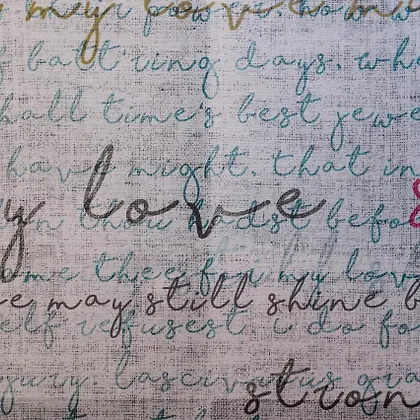 my
f batt'ring days. whe
hall time's best jewe
have might. that in
y love
know hadst befo
me thee for my lov
e may still shine b
elf refusest. i do fo
jury. lascivious gra
stron